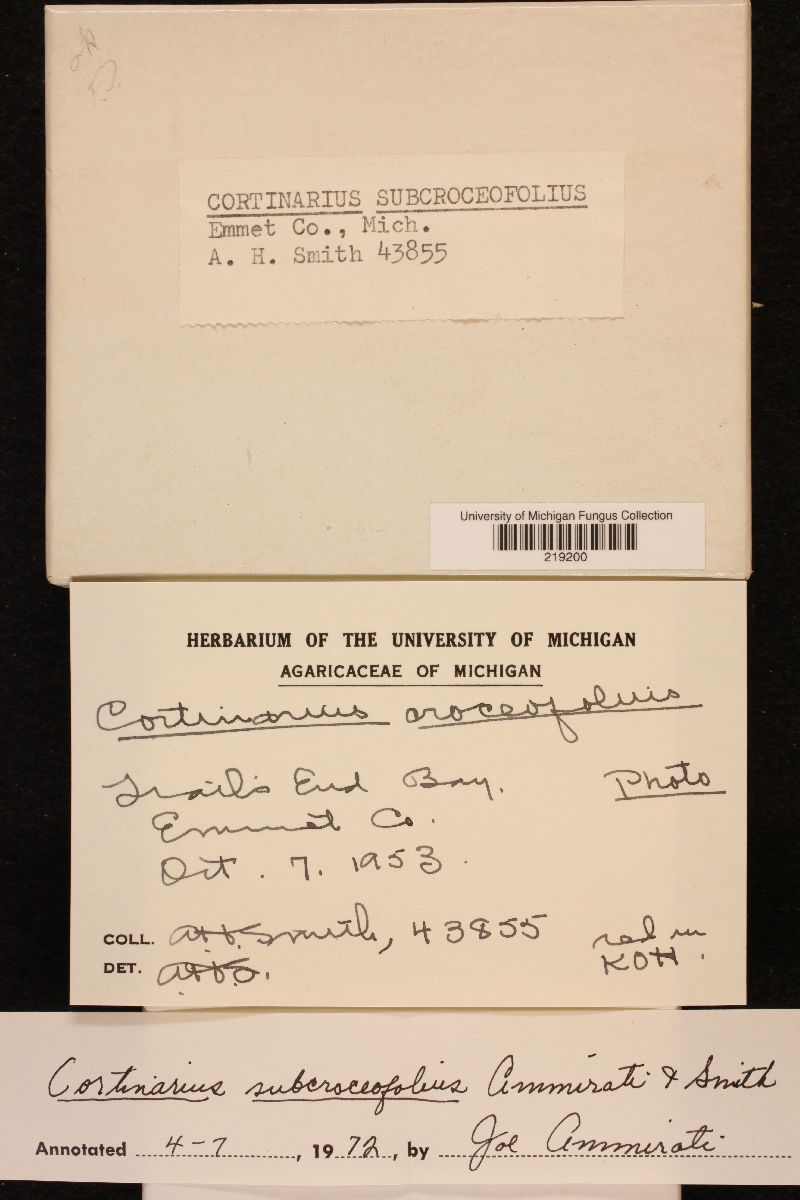 CORTINARIUS SUBCROCEOFOLIUS
Emmet Co., Mich.
A. H. Smith 43855
University of Michigan Fungus Collection
219200
HERBARIUM OF THE UNIVERSITY OF MICHIGAN
AGARICACEAE OF MICHIGAN
Cortinarius croceofolius
Trail's End Bay. Photo
Emmet Co.
Oct. 7. 1953.
COLL. A.H. Smith, 43855 red in
DET. A.H.S. KOH.
Cortinarius subcroceofolius Ammirati & Smith
Annotated 4-7, 1972, by Joe Ammirati